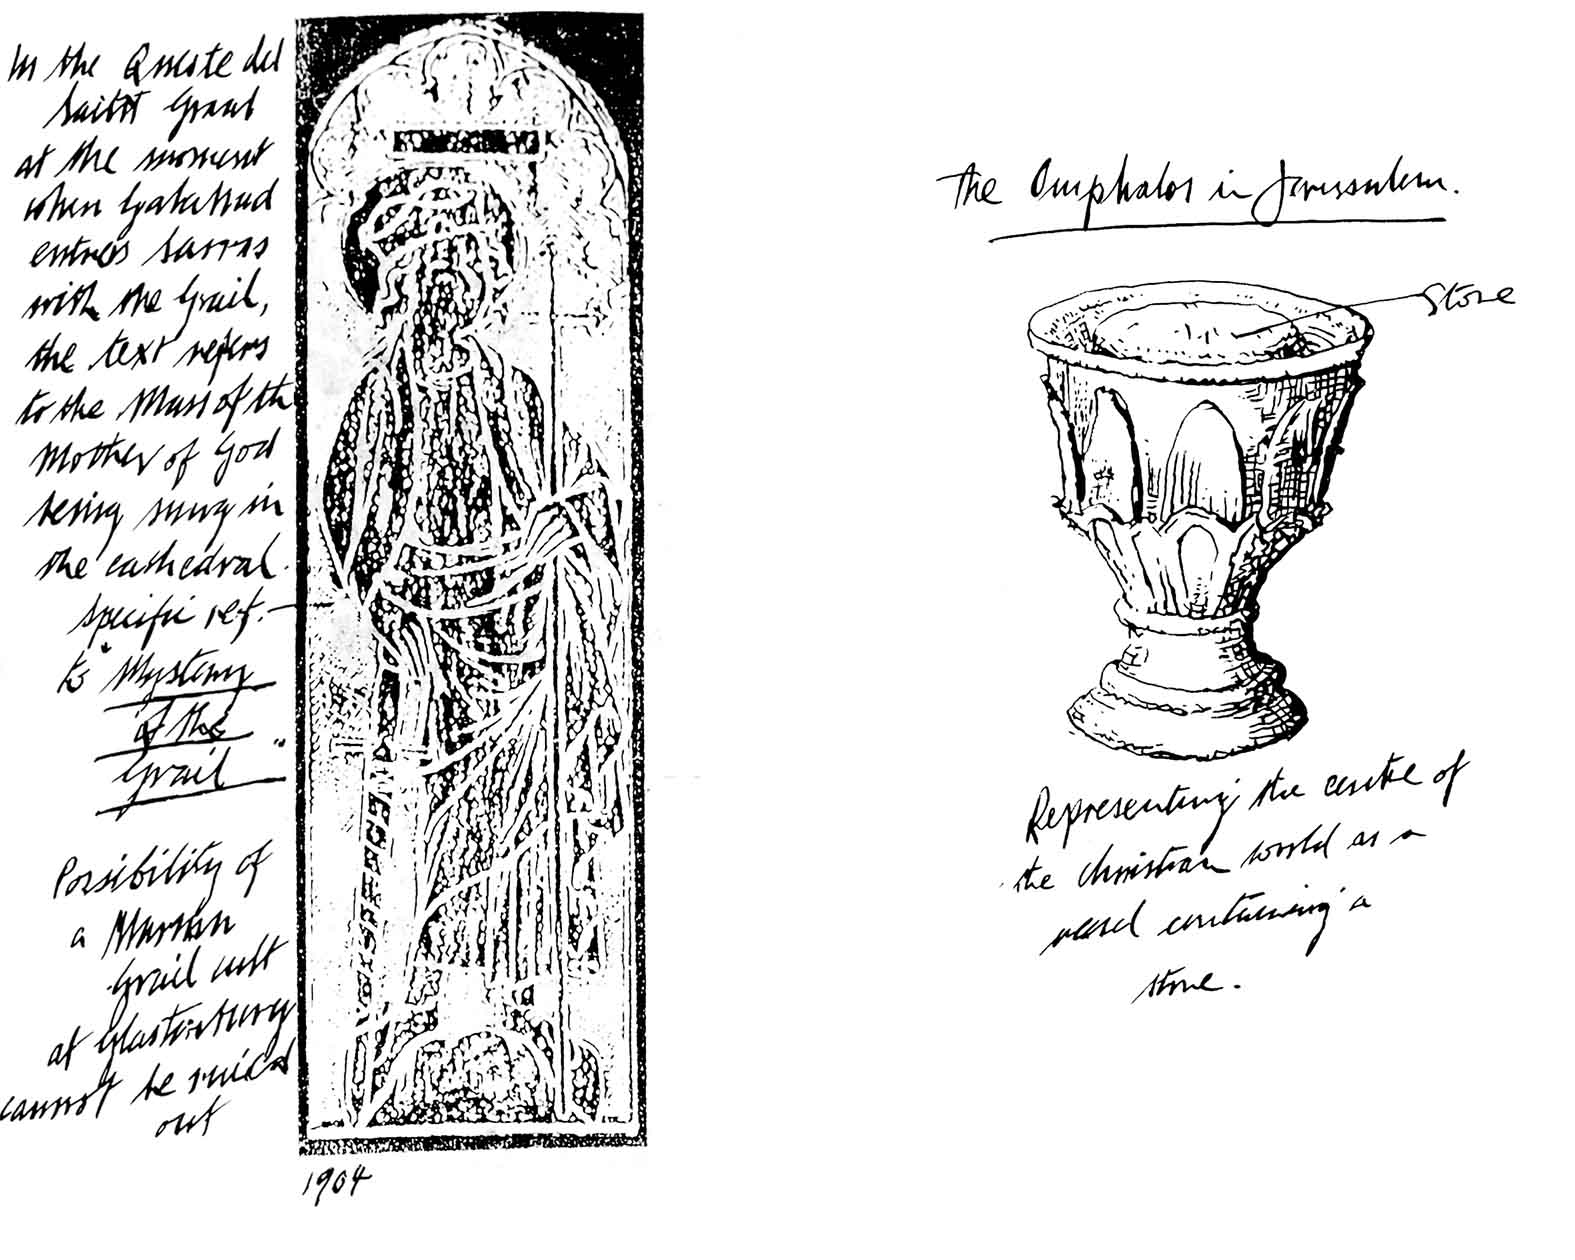 In the Queste del
Saint Graal
at the moment
when Galahad
enters Sarras
with the Grail,
the text refers
to the Mass of th
Mother of God
being sung in
the cathedral.
specific ref.
to "Mystery
of the
Grail"
Possibility of
a Marian
Grail cult
at Glastonbury
cannot be ruled
out
1904
The Omphalos in Jerusalem.
Stone
Representing the centre of
the Christian world as a
vessel containing a
stone.